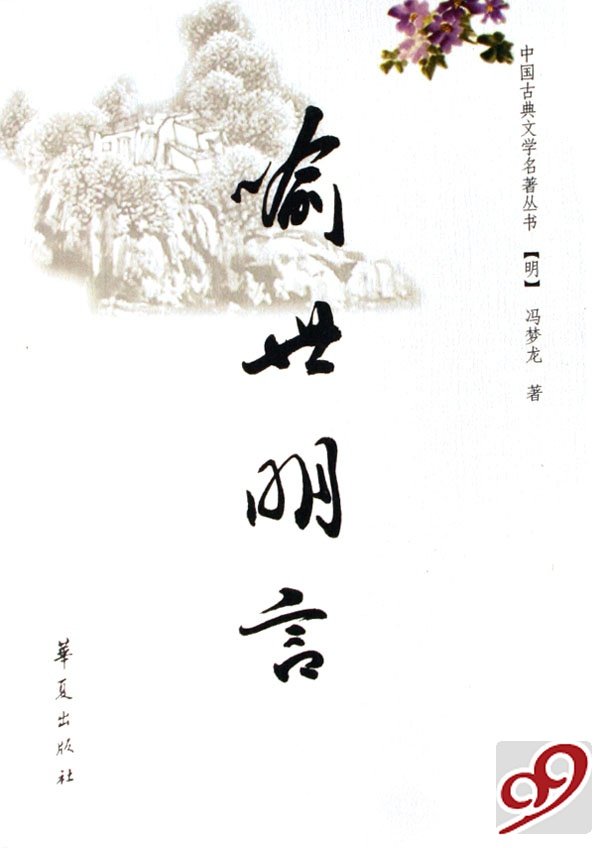 中国古典文学名著丛书【明】 冯梦龙 著
喻世明言
華夏出版社
99